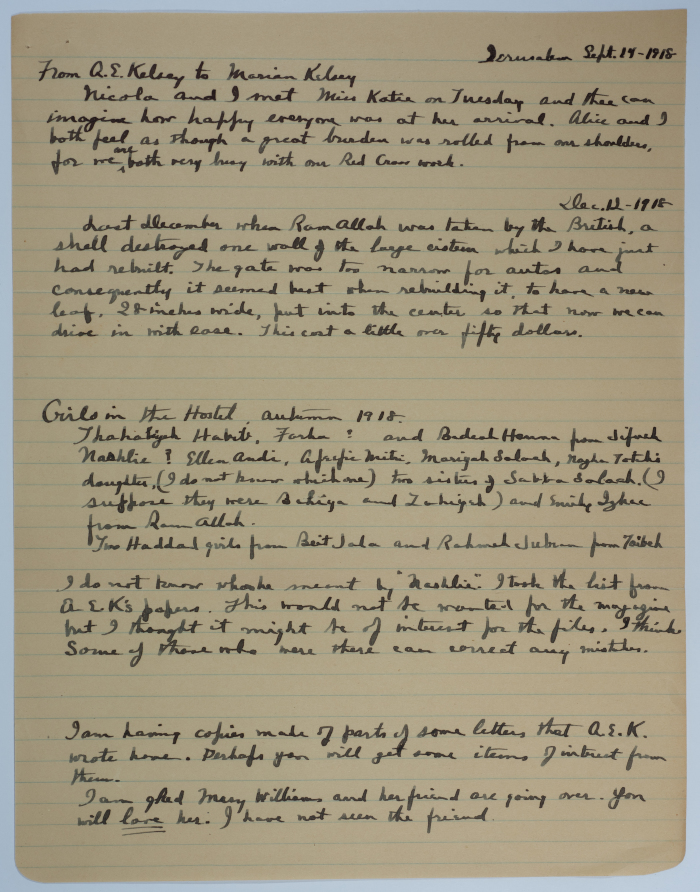 Jerusalem Sept. 14-1918
From A.E. Kelsey to Marian Kelsey
Nicola and I met Miss Katie on Tuesday and thee can
imagine how happy everyone was at her arrival. Alice and I
both feel as though a great burden was rolled from our shoulders,
for we are both very busy with our Red Cross work.
Dec. 12-1918
Last December when Ram Allah was taken by the British, a
shell destroyed one wall of the large cistern which I have just
had rebuilt. The gate was too narrow for autos and
consequently it seemed best when rebuilding it, to have a new
leaf, 28 inches wide, put into the center so that now we can
drive in with ease. This cost a little over fifty dollars.
Girls in the Hostel, autumn 1918.
Habib, Farha ? and Hanna from Jifneh
Nashlie ? Ellen Audi, Afefie Mitri, Mariyah Salah,
daughter, (I do not know which one) two sisters of Salah. (I
suppose they were Bahiya and Zahiyeh) and Emily
from Ram Allah.
Two Haddad girls from Beit Jala and Rahmeh Jubran from Taibeh
I do not know who he meant by "Nashlie". I took the list from
A.E.K's papers. This would not be wanted for the magazine
but I thought it might be of interest for the files. I think
some of those who were there can correct any mistakes.
I am having copies made of parts of some letters that A.E.K.
wrote home. Perhaps you will get some items of interest from
them.
I am glad Mary Williams and her friend are going over. You
will love her. I have not seen the friend.